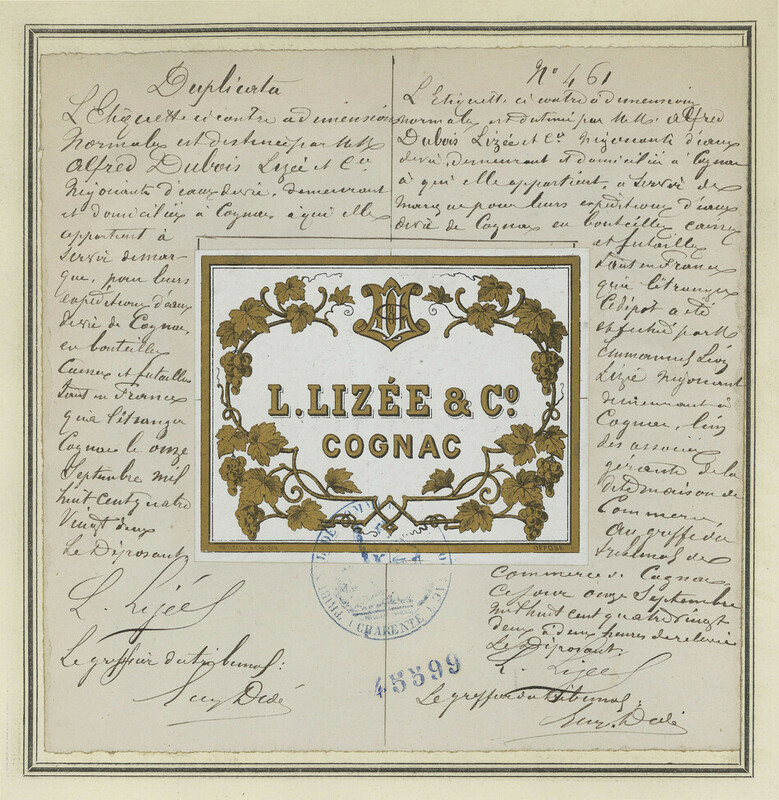 Duplicata
L'Etiquette ci contre a dimensions
normales est destinée par MM
Alfred Dubois Lizée et Cie
Négociants d'eaux de vie, demeurant
et domiciliés à Cognac à qui elle
appartient à
servir de mar
que, pour leurs
expéditions d'eaux
de vie de Cognac,
en bouteilles
Caisses et futailles
tant en France
qu'a l'étranger
Cognac le onze
Septembre mil
huit cent quatre
Vingt deux
Le Déposant
L. Lizée
Le greffier du tribunal:
No 461
L'Etiquette ci contre à dimensions
normales est destinée par MM. Alfred
Dubois Lizée et Cie Négociants d'eaux
de vie demeurant et domiciliés à Cognac
à qui elle appartient, à servir de
marque pour leurs expéditions d'eaux
de vie de Cognac en bouteilles caisses
et futailles
tant en France
qu'à l'étranger
Ce dépot a été
effectué par M
Emmanuel Léon
Lizée Négociant
demeurant à
Cognac, l'un
des associés
gérants de la
dite maison de
Commerce
Au greffe du
Tribunal de
commerce de Cognac
Ce jour onze Septembre
mil huit cent quatre vingt
deux à deux heures de relevée
Le Déposant
L. Lizée
Le greffier du tribunal:
L. LIZÉE & Co.
COGNAC
DÉPOSÉ
CHARENTE
45599